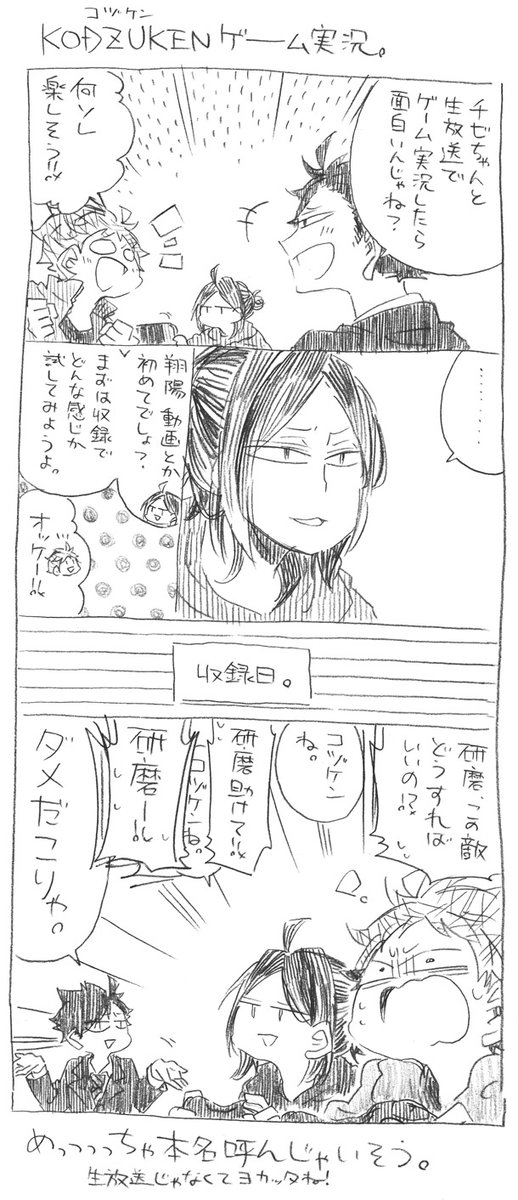 コヅケン
KODZUKENゲーム実況。
チビちゃんと
生放送で
ゲーム実況したら
面白いんじゃね?
何ソレ
楽しそう!!
‥‥‥‥
翔陽 動画とか
初めてでしょ?
まずは収録で
どんな感じか
試してみようよ。
オッケー!!
収録日。
研磨、この敵
どうすれば
いいの!?
コヅケン
ね。
研磨助けて!!
コヅケンね。
研磨ー!!
ダメだこりゃ。
めっっっっちゃ本名呼んじゃいそう。
生放送じゃなくてヨカッタね!